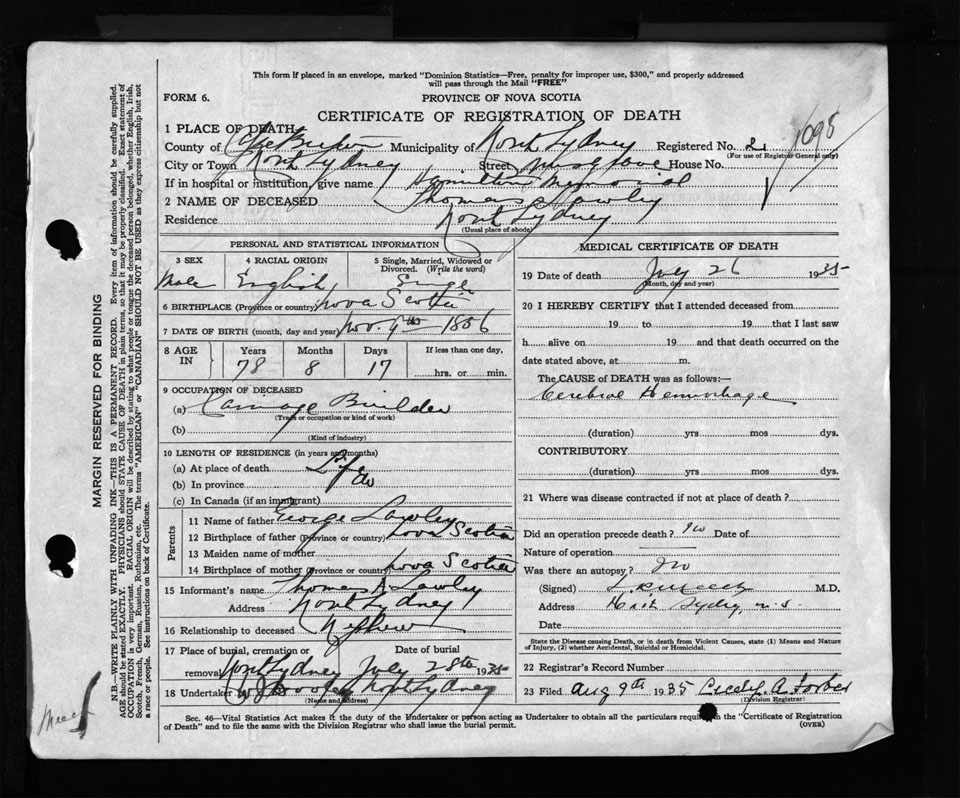 This form if placed in an envelope, marked "Dominion Statistics—Free, penalty for improper use, $300," and properly addressed
will pass through the Mail "FREE"
FORM 6.
PROVINCE OF NOVA SCOTIA
CERTIFICATE OF REGISTRATION OF DEATH
1095
1 PLACE OF DEATH
County of Cape Breton Municipality of North Sydney Registered No. 2
(For use of Registrar General only)
City or Town North Sydney Street Musgrave House No.
If in hospital or institution, give name Hamilton Memorial
2 NAME OF DECEASED Thomas Lawley
Residence North Sydney
(Usual place of abode)
PERSONAL AND STATISTICAL INFORMATION
3 SEX 4 RACIAL ORIGIN 5 Single, Married, Widowed or
Divorced. (Write the word)
Male English Single
6 BIRTHPLACE (Province or country) Nova Scotia
7 DATE OF BIRTH (month, day and year) Nov. 9th 1856
8 AGE IN Years Months Days If less than one day,
78 8 17 hrs. or min.
9 OCCUPATION OF DECEASED
(a) Carriage Builder
(Trade or occupation or kind of work)
(b)
(Kind of industry)
10 LENGTH OF RESIDENCE (in years and months)
(a) At place of death Life
(b) In province do
(c) In Canada (if an immigrant)
Parents
11 Name of father George Lawley
12 Birthplace of father (Province or country) Nova Scotia
13 Maiden name of mother
14 Birthplace of mother (Province or country) Nova Scotia
15 Informant's name Thomas A Lawley
Address North Sydney
16 Relationship to deceased Nephew
17 Place of burial, cremation or Date of burial
removal North Sydney July 28th 1935
18 Undertaker North Sydney
(Name and address)
MEDICAL CERTIFICATE OF DEATH
19 Date of death July 26 1935
(Month, day and year)
20 I HEREBY CERTIFY that I attended deceased from
19 to 19 that I last saw
h alive on 19 and that death occurred on the
date stated above, at m.
The CAUSE of DEATH was as follows:—
Cerebral Hemorrhage
(duration) yrs mos dys.
CONTRIBUTORY
(duration) yrs mos dys.
21 Where was disease contracted if not at place of death?
Did an operation precede death? No Date of
Nature of operation
Was there an autopsy? No
(Signed) M.D.
Address North Sydney N.S.
Date
State the Disease causing Death, or in death from Violent Causes, state (1) Means and Nature
of Injury, (2) whether Accidental, Suicidal or Homicidal.
22 Registrar's Record Number
23 Filed Aug 9th 1935 A. Forbes
(Division Registrar)
Sec. 46—Vital Statistics Act makes it the duty of the Undertaker or person acting as Undertaker to obtain all the particulars required in the "Certificate of Registration
of Death" and to file the same with the Division Registrar who shall issue the burial permit.
(OVER)
MARGIN RESERVED FOR BINDING
N.B.—WRITE PLAINLY WITH UNFADING INK—THIS IS A PERMANENT RECORD. Every item of information should be carefully supplied.
AGE should be stated EXACTLY. PHYSICIANS should STATE CAUSE OF DEATH in plain terms, so that it may be properly classified. Exact statement of
OCCUPATION is very important. RACIAL ORIGIN will be described by stating to what people or tongue the deceased person belonged, whether English, Irish,
Scotch, French, German, Russian, Ruthenian, etc. The terms "AMERICAN" or "CANADIAN" SHOULD NOT BE USED as they express citizenship but not
a race or people. See instructions on back of Certificate.